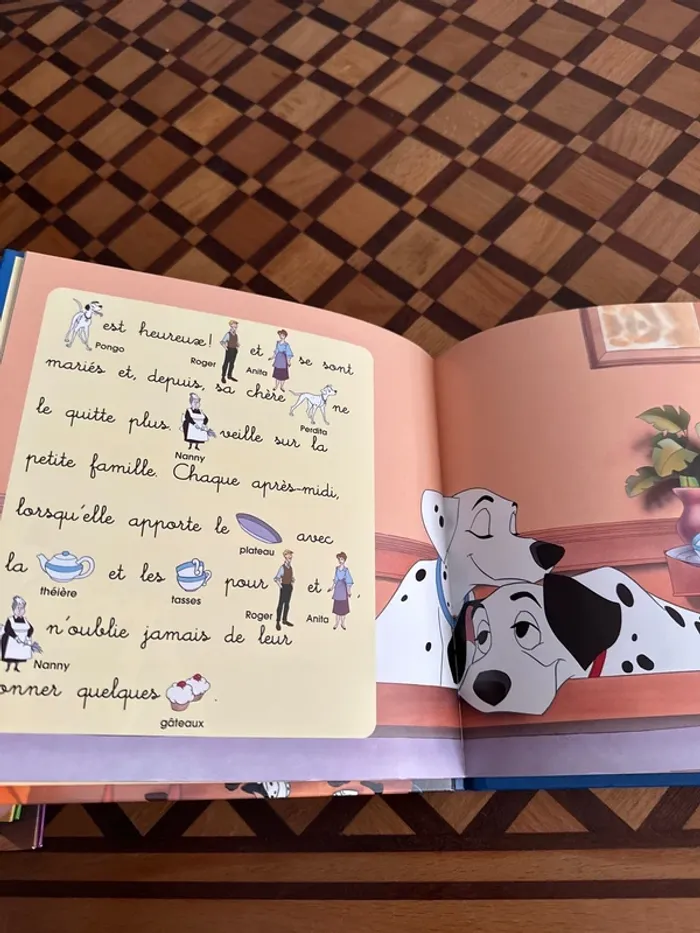 est heureux! et se sont
Pongo Roger Anita
mariés et, depuis, sa chère ne
Perdita
le quitte plus. veille sur la
Nanny
petite famille. Chaque après-midi,
lorsqu'elle apporte le avec
plateau
la et les pour et .
théière tasses Roger Anita
n'oublie jamais de leur
Nanny
onner quelques
gâteaux